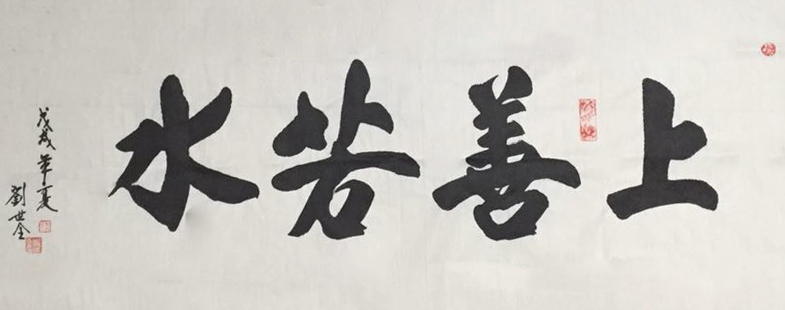 上善若水
戊戌年夏
劉世全